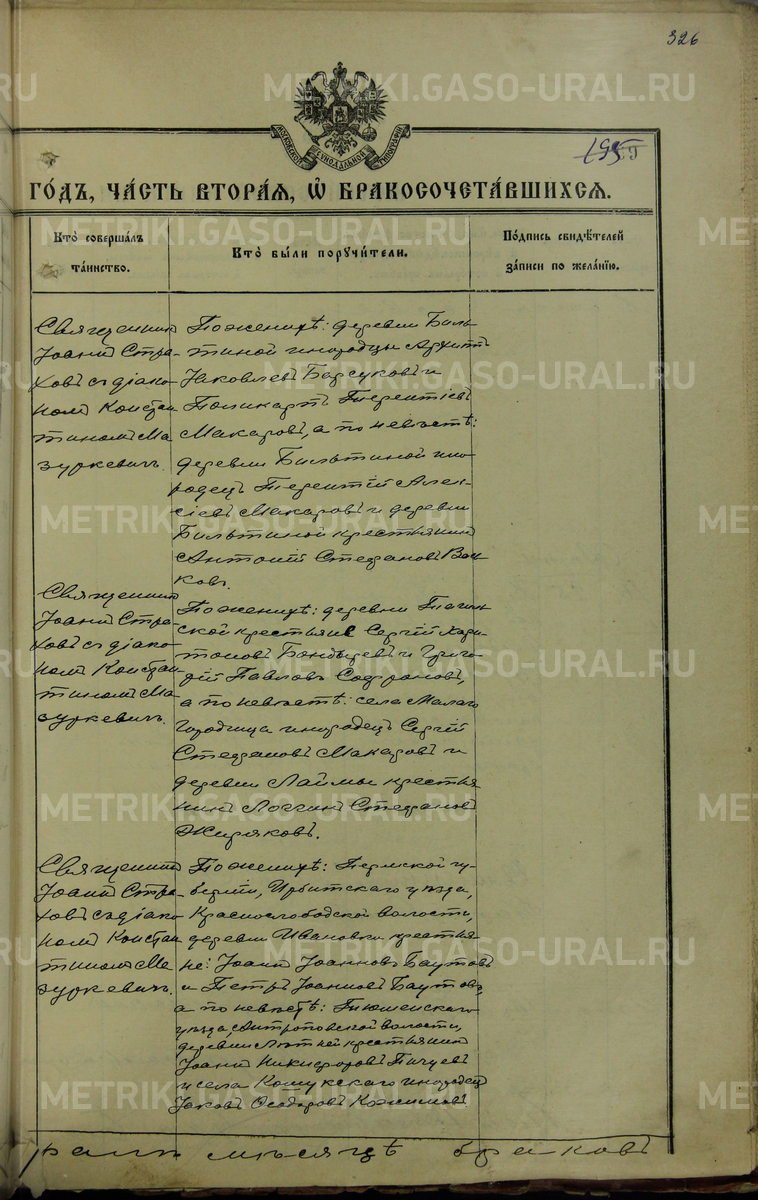 326
METRIKI.GASO-URAL.RU
МОСКОВСКОЙ СѴНОДАЛЬНОЙ ТИПОГРАФІИ
195
ГО́ДЪ, ЧА́СТЬ ВТОРА́Я, Ѽ БРАКОСОЧЕТА́ВШИХСЯ.
Кто̀ соверша́лъ
та́инство.
Кто̀ бы́ли порꙋчи́тели.
По́дпись свидѣ́телей
за́писи по жела́нїю.
Священник
Іоанн Стра-
ховъ съ діако-
номъ Констан
тиномъ Ма
зуркевичъ.
По женихѣ: деревни Биль-
тиной инородцы Архиппъ
Іаковлевъ Барсуковъ и
Поликарпъ Терентіевъ
Макаровъ, а по невѣстѣ:
деревни Бильтиной ино-
родецъ Терентій Алек-
сіевъ Макаровъ и деревни
Бильтиной крестьянин
Антоній Стефановъ
ковъ.
Священник
Іоанн Стра-
ховъ съ діако-
номъ Констан
тиномъ Ма-
зуркевичъ.
По женихѣ: деревни
ской крестьяне Сергій Хари-
тоновъ Бондыревъ и Григо-
рій Павловъ Софроновъ,
а по невѣстѣ: села Малаго
Городища инородецъ Сергій
Стефановъ Макаровъ и
деревни Лаймы крестья
нинъ Логгинъ Стефановъ
Жиряковъ.
Священник
Іоанн Стра-
ховъ съ діако
номъ Констан
тиномъ Ма
зуркевичъ.
По женихѣ: Пермской гу-
берніи, Ирбитскаго уѣзда,
Краснослободской волости,
деревни Ивановки крестья
не: Іоанн Іоанновъ Баутовъ
и Петръ Іоанновъ Баутовъ,
а по невѣстѣ: Тюменскаго
уѣзда, Антроповской волости,
деревни крестьянин
Іоанн Никифоровъ Пичуев
и села Кошукскаго инородец
Іаковъ Феодоровъ Кажимовъ
мѣсяцѣ браковъ